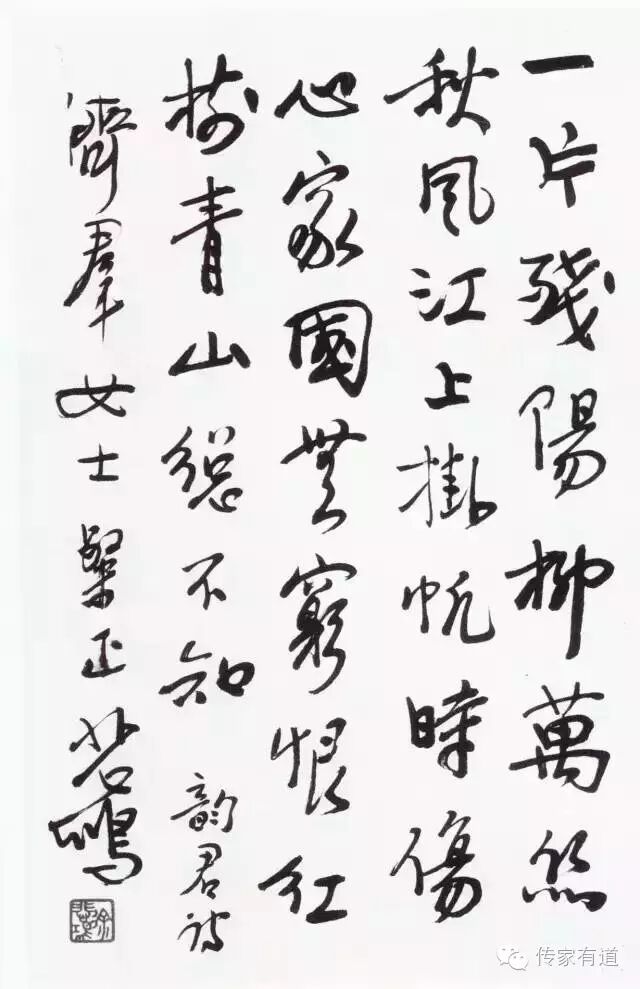 一片殘陽柳萬絲
秋風江上掛帆時傷
心家國無窮恨紅
樹青山總不知 韵君詩
齊羣女士粲正
传家有道